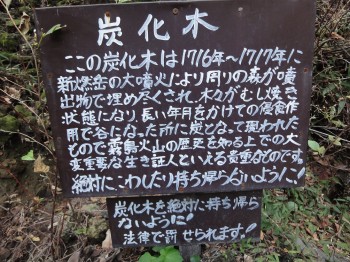 炭化木
この炭化木は1716年〜1717年に
新燃岳の大噴火により周りの森が噴
出物で埋め尽くされ、木々がむし焼き
状態になり、長い年月をかけての侵食作
用で谷になった所に炭となって現われた
もので霧島火山の歴史を知る上での大
変重要な生き証人といえる貴重なものです。
絶対にこわしたり持ち帰らないように!
炭化木を絶対に持ち帰ら
ないように!
法律で罰せられます!